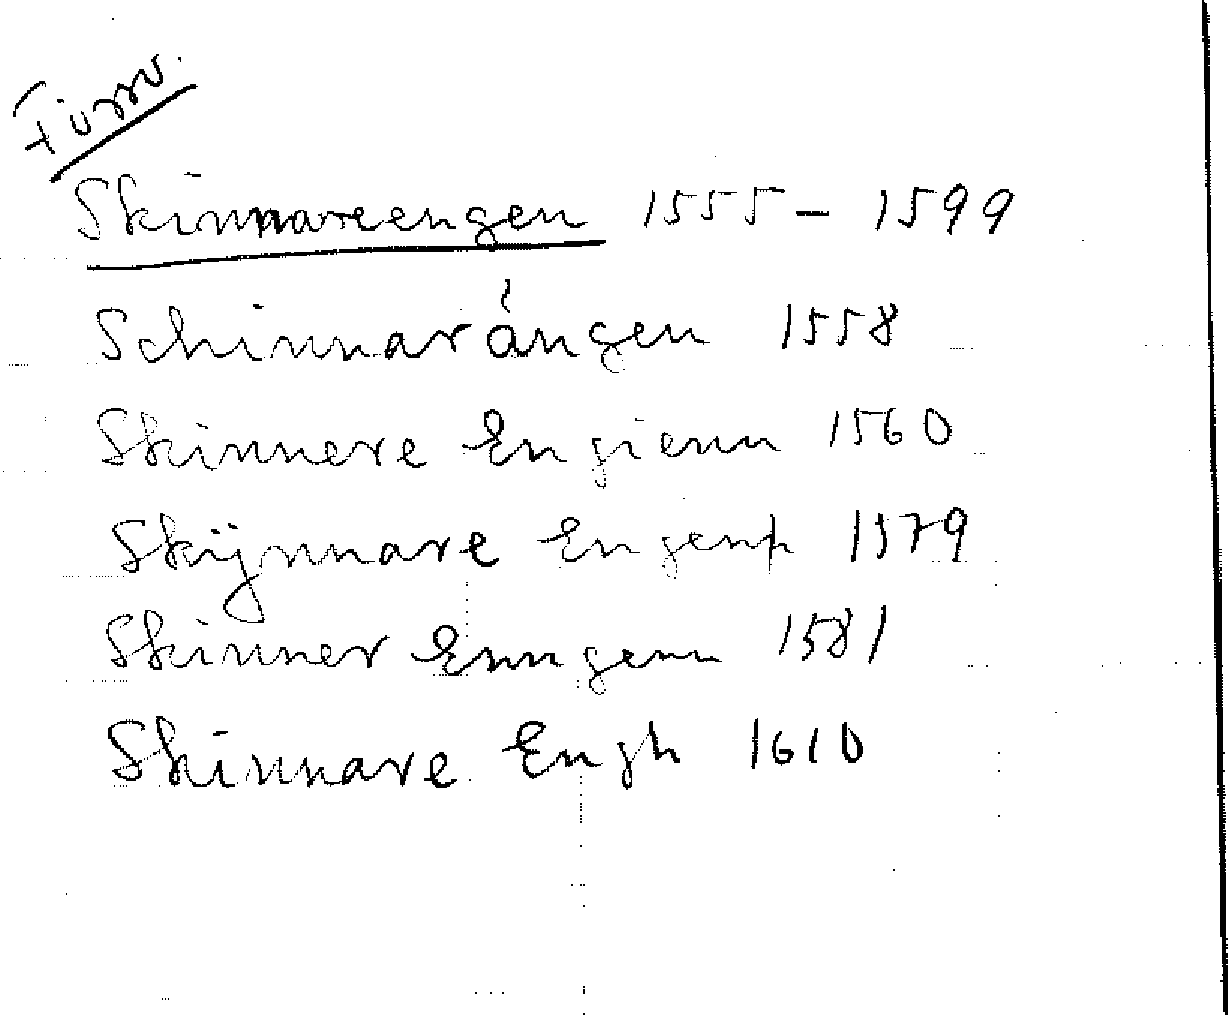 Försv.
Skinnareengen 1555 – 1599
Schinnarángen 1558
Skinnere Engienn 1560
Skijnnare Engenn 1579
Skinner Enngenn 1581
Skinnare Engh 1610